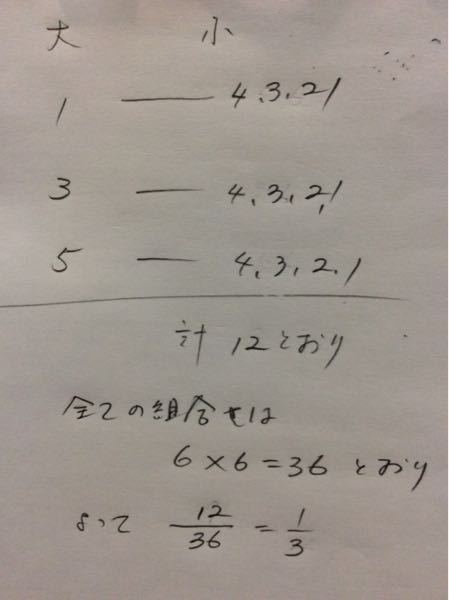 大 小
1 — 4、3、2、1
3 — 4、3、2、1
5 — 4、3、2、1
計 12とおり
全ての組合せは
6×6=36 とおり
よって 12/36 = 1/3